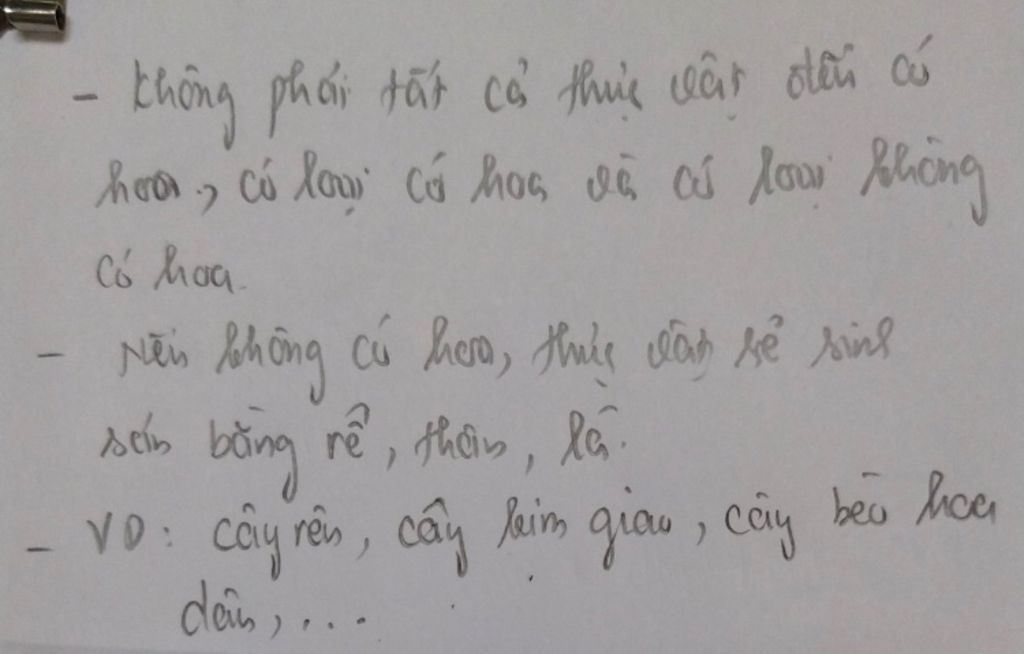 - Không phải tất cả thực vật đều có
hoa, có loại có hoa và có loại không
có hoa.
- Nếu không có hoa, thực vật sẽ sinh
sản bằng rễ, thân, lá.
- VD: cây rêu, cây kim giao, cây bèo hoa
dâu,...